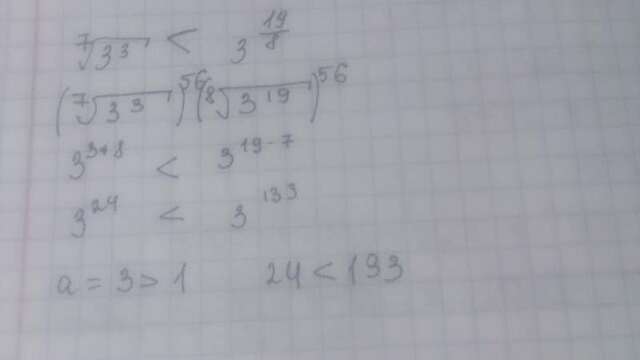 ⁷√3³ < 3^(19/8)
(⁷√3³)^56 (⁸√3^19)^56
3^(3·8) < 3^(19·7)
3^24 < 3^133
a = 3 > 1 24 < 193